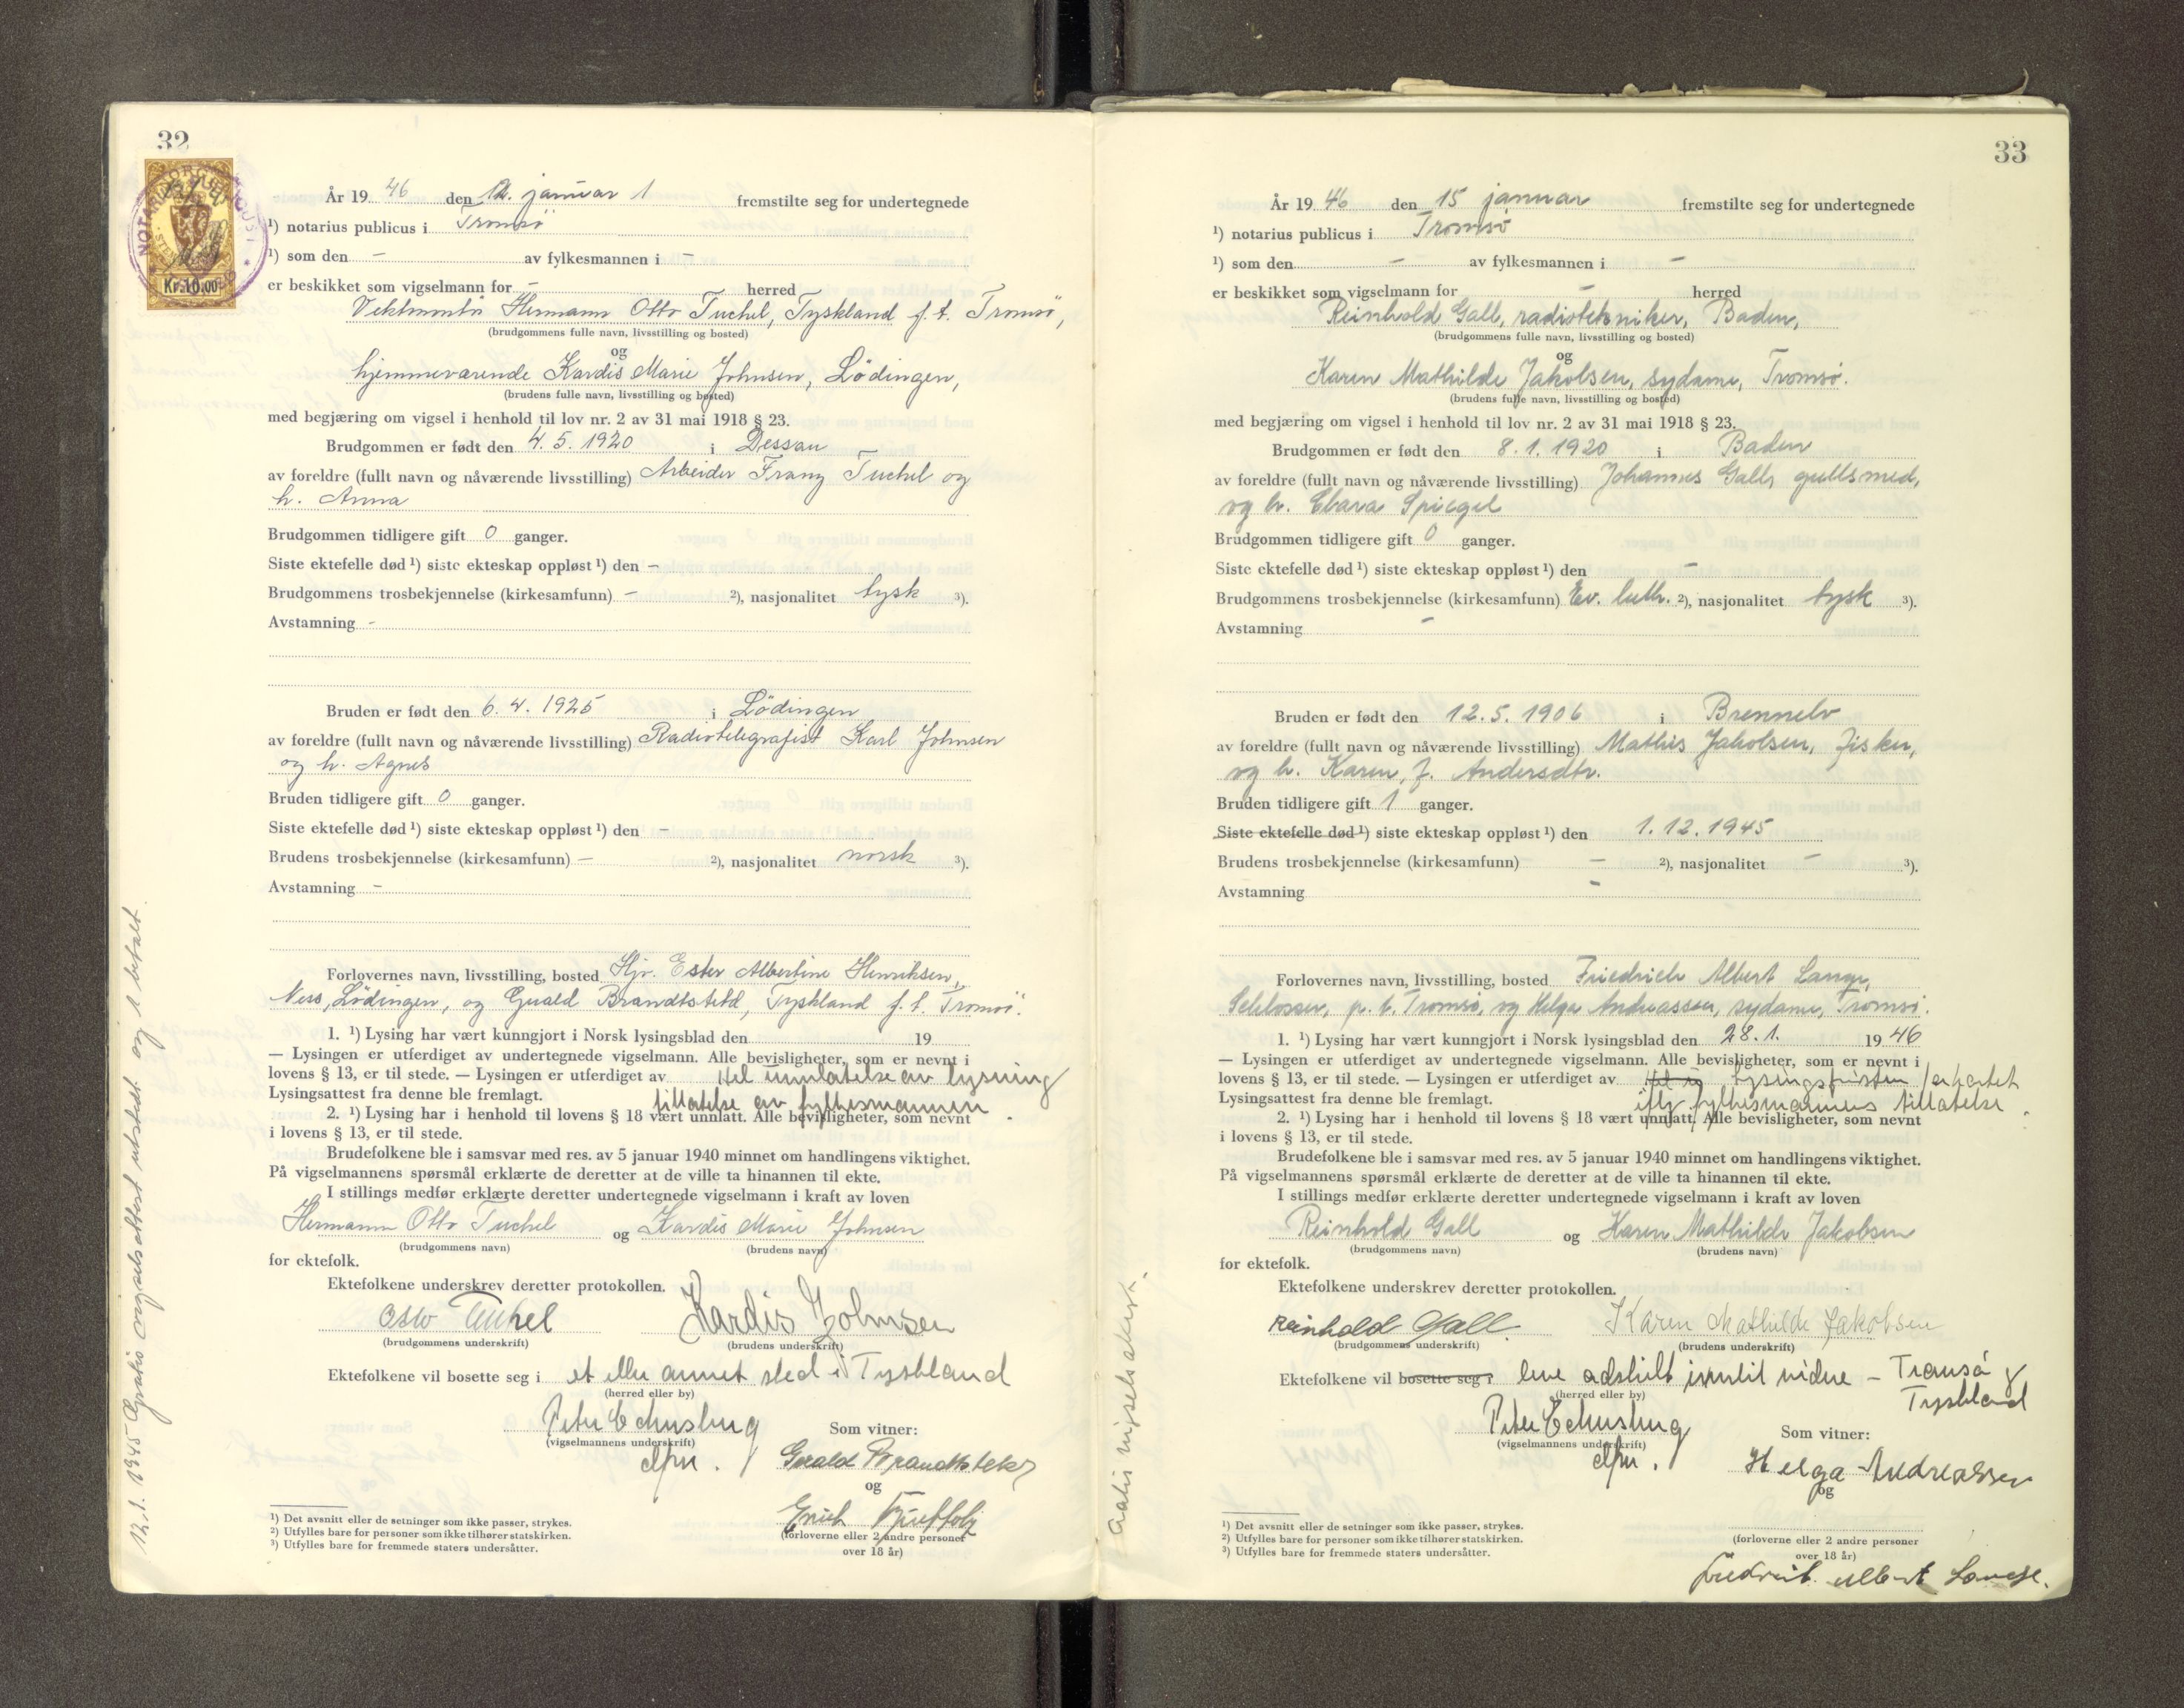 32
År 19 46 den 12. januar 1 fremstilte seg for undertegnede
¹) notarius publicus i Tromsö
¹) som den – av fylkesmannen i –
er beskikket som vigselmann for – herred
Hermann Otto Tuchel, Tyskland f. t. Tromsö,
(brudgommens fulle navn, livsstilling og bosted)
og
hjemmeværende Kardis Marie Johnsen, Lödingen,
(brudens fulle navn, livsstilling og bosted)
med begjæring om vigsel i henhold til lov nr. 2 av 31 mai 1918 § 23.
Brudgommen er født den 4. 5. 1920 i Dessau
av foreldre (fullt navn og nåværende livsstilling) Arbeider Franz Tuchel og
h. Anna
Brudgommen tidligere gift 0 ganger.
Siste ektefelle død ¹) siste ekteskap oppløst ¹) den –
Brudgommens trosbekjennelse (kirkesamfunn) – ²), nasjonalitet tysk ³).
Avstamning –
Bruden er født den 6. 4. 1925 i Lödingen
av foreldre (fullt navn og nåværende livsstilling) Radiotelegrafist Karl Johnsen
og h. Agnes
Bruden tidligere gift 0 ganger.
Siste ektefelle død ¹) siste ekteskap oppløst ¹) den –
Brudens trosbekjennelse (kirkesamfunn) – ²), nasjonalitet norsk ³).
Avstamning –
Forlovernes navn, livsstilling, bosted Hjv. Ester Albertine Henriksen,
Ness, Lödingen, og Brandtstetd, Tyskland f. t. Tromsö.
1. ¹) Lysing har vært kunngjort i Norsk lysingsblad den 19
— Lysingen er utferdiget av undertegnede vigselmann. Alle bevisligheter, som er nevnt i
lovens § 13, er til stede. — Lysingen er utferdiget av Hel unnlatelse av lysning
Lysingsattest fra denne ble fremlagt. tillatelse av fylkesmannen.
2. ¹) Lysing har i henhold til lovens § 18 vært unnlatt. Alle bevisligheter, som nevnt
i lovens § 13, er til stede.
Brudefolkene ble i samsvar med res. av 5 januar 1940 minnet om handlingens viktighet.
På vigselmannens spørsmål erklærte de deretter at de ville ta hinannen til ekte.
I stillings medfør erklærte deretter undertegnede vigselmann i kraft av loven
Hermann Otto Tuchel og Kardis Marie Johnsen
(brudgommens navn) (brudens navn)
for ektefolk.
Ektefolkene underskrev deretter protokollen.
Otto Tuchel Kardis Johnsen
(brudgommens underskrift) (brudens underskrift)
Ektefolkene vil bosette seg i et eller annet sted i Tyskland
(herred eller by)
Peter
(vigselmannens underskrift) Som vitner:
Gerald
og
Erich
(forloverne eller 2 andre personer
over 18 år)
¹) Det avsnitt eller de setninger som ikke passer, strykes.
²) Utfylles bare for personer som ikke tilhører statskirken.
³) Utfylles bare for fremmede staters undersåtter.
12.1. 1945 Gratis vigselsattest utstedt og 1 betalt.
Kr.10.00
NOTARIUS PUBLICUS
33
År 19 46 den 15 januar fremstilte seg for undertegnede
¹) notarius publicus i Tromsö
¹) som den – av fylkesmannen i –
er beskikket som vigselmann for – herred
Reinhold Gall, radiotekniker, Baden,
(brudgommens fulle navn, livsstilling og bosted)
og
Karen Mathilde Jakobsen, sydame, Tromsø.
(brudens fulle navn, livsstilling og bosted)
med begjæring om vigsel i henhold til lov nr. 2 av 31 mai 1918 § 23.
Brudgommen er født den 8. 1. 1920 i Baden
av foreldre (fullt navn og nåværende livsstilling) Johannes Gall, gullsmed,
og h. Clara Spiegel
Brudgommen tidligere gift 0 ganger.
Siste ektefelle død ¹) siste ekteskap oppløst ¹) den –
Brudgommens trosbekjennelse (kirkesamfunn) Ev. luth. ²), nasjonalitet tysk ³).
Avstamning –
Bruden er født den 12. 5. 1906 i Brennelv
av foreldre (fullt navn og nåværende livsstilling) Mathis Jakobsen, fisker,
og h. Karen, f. Andersdtr.
Bruden tidligere gift 1 ganger.
Siste ektefelle død ¹) siste ekteskap oppløst ¹) den 1. 12. 1945
Brudens trosbekjennelse (kirkesamfunn) – ²), nasjonalitet – ³).
Avstamning –
Forlovernes navn, livsstilling, bosted Friedrich Albert Lange,
Schlosser, p. t. Tromsø, og Helga Andreassen, sydame, Tromsø.
1. ¹) Lysing har vært kunngjort i Norsk lysingsblad den 28. 1. 19 46
— Lysingen er utferdiget av undertegnede vigselmann. Alle bevisligheter, som er nevnt i
lovens § 13, er til stede. — Lysingen er utferdiget av lysingsfristen forkortet
Lysingsattest fra denne ble fremlagt. iflg fylkesmannens tillatelse.
2. ¹) Lysing har i henhold til lovens § 18 vært unnlatt. Alle bevisligheter, som nevnt
i lovens § 13, er til stede.
Brudefolkene ble i samsvar med res. av 5 januar 1940 minnet om handlingens viktighet.
På vigselmannens spørsmål erklærte de deretter at de ville ta hinannen til ekte.
I stillings medfør erklærte deretter undertegnede vigselmann i kraft av loven
Reinhold Gall og Karen Mathilde Jakobsen
(brudgommens navn) (brudens navn)
for ektefolk.
Ektefolkene underskrev deretter protokollen.
Reinhold Gall Karen Mathilde Jakobsen
(brudgommens underskrift) (brudens underskrift)
Ektefolkene vil bosette seg i leve adskilt inntil videre – Tromsö og
(herred eller by) Tyskland
Peter
(vigselmannens underskrift) Som vitner:
Helga Andreassen
og
(forloverne eller 2 andre personer
over 18 år)
Friedrich Albert Lange.
¹) Det avsnitt eller de setninger som ikke passer, strykes.
²) Utfylles bare for personer som ikke tilhører statskirken.
³) Utfylles bare for fremmede staters undersåtter.
Gratis vigselsattest.